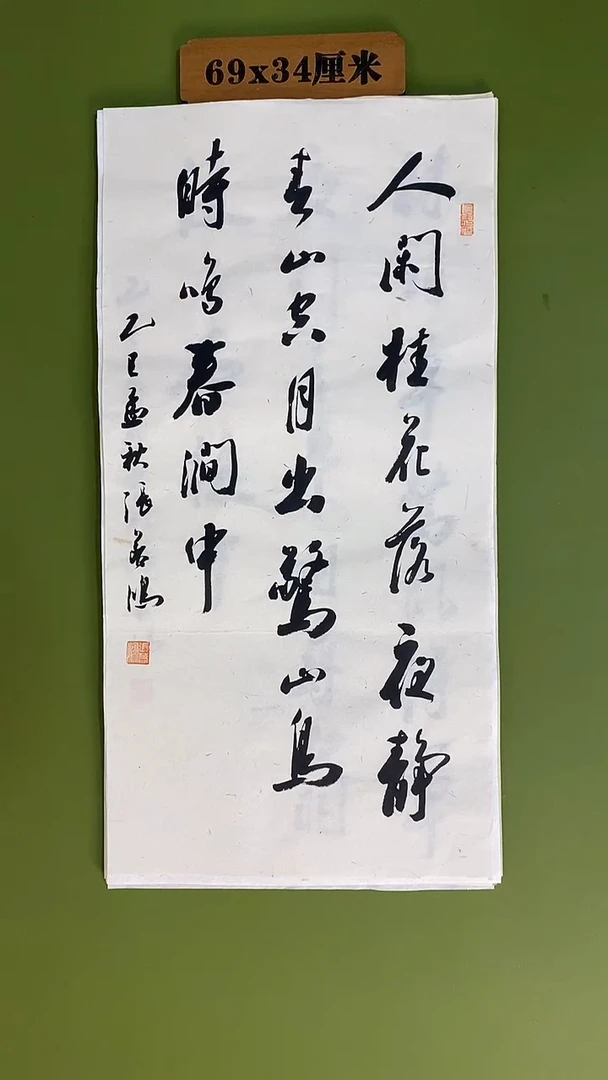 69x34厘米
人閑桂花落夜静
春山空月出驚山鳥
時鳴春澗中
乙巳孟秋張鴻